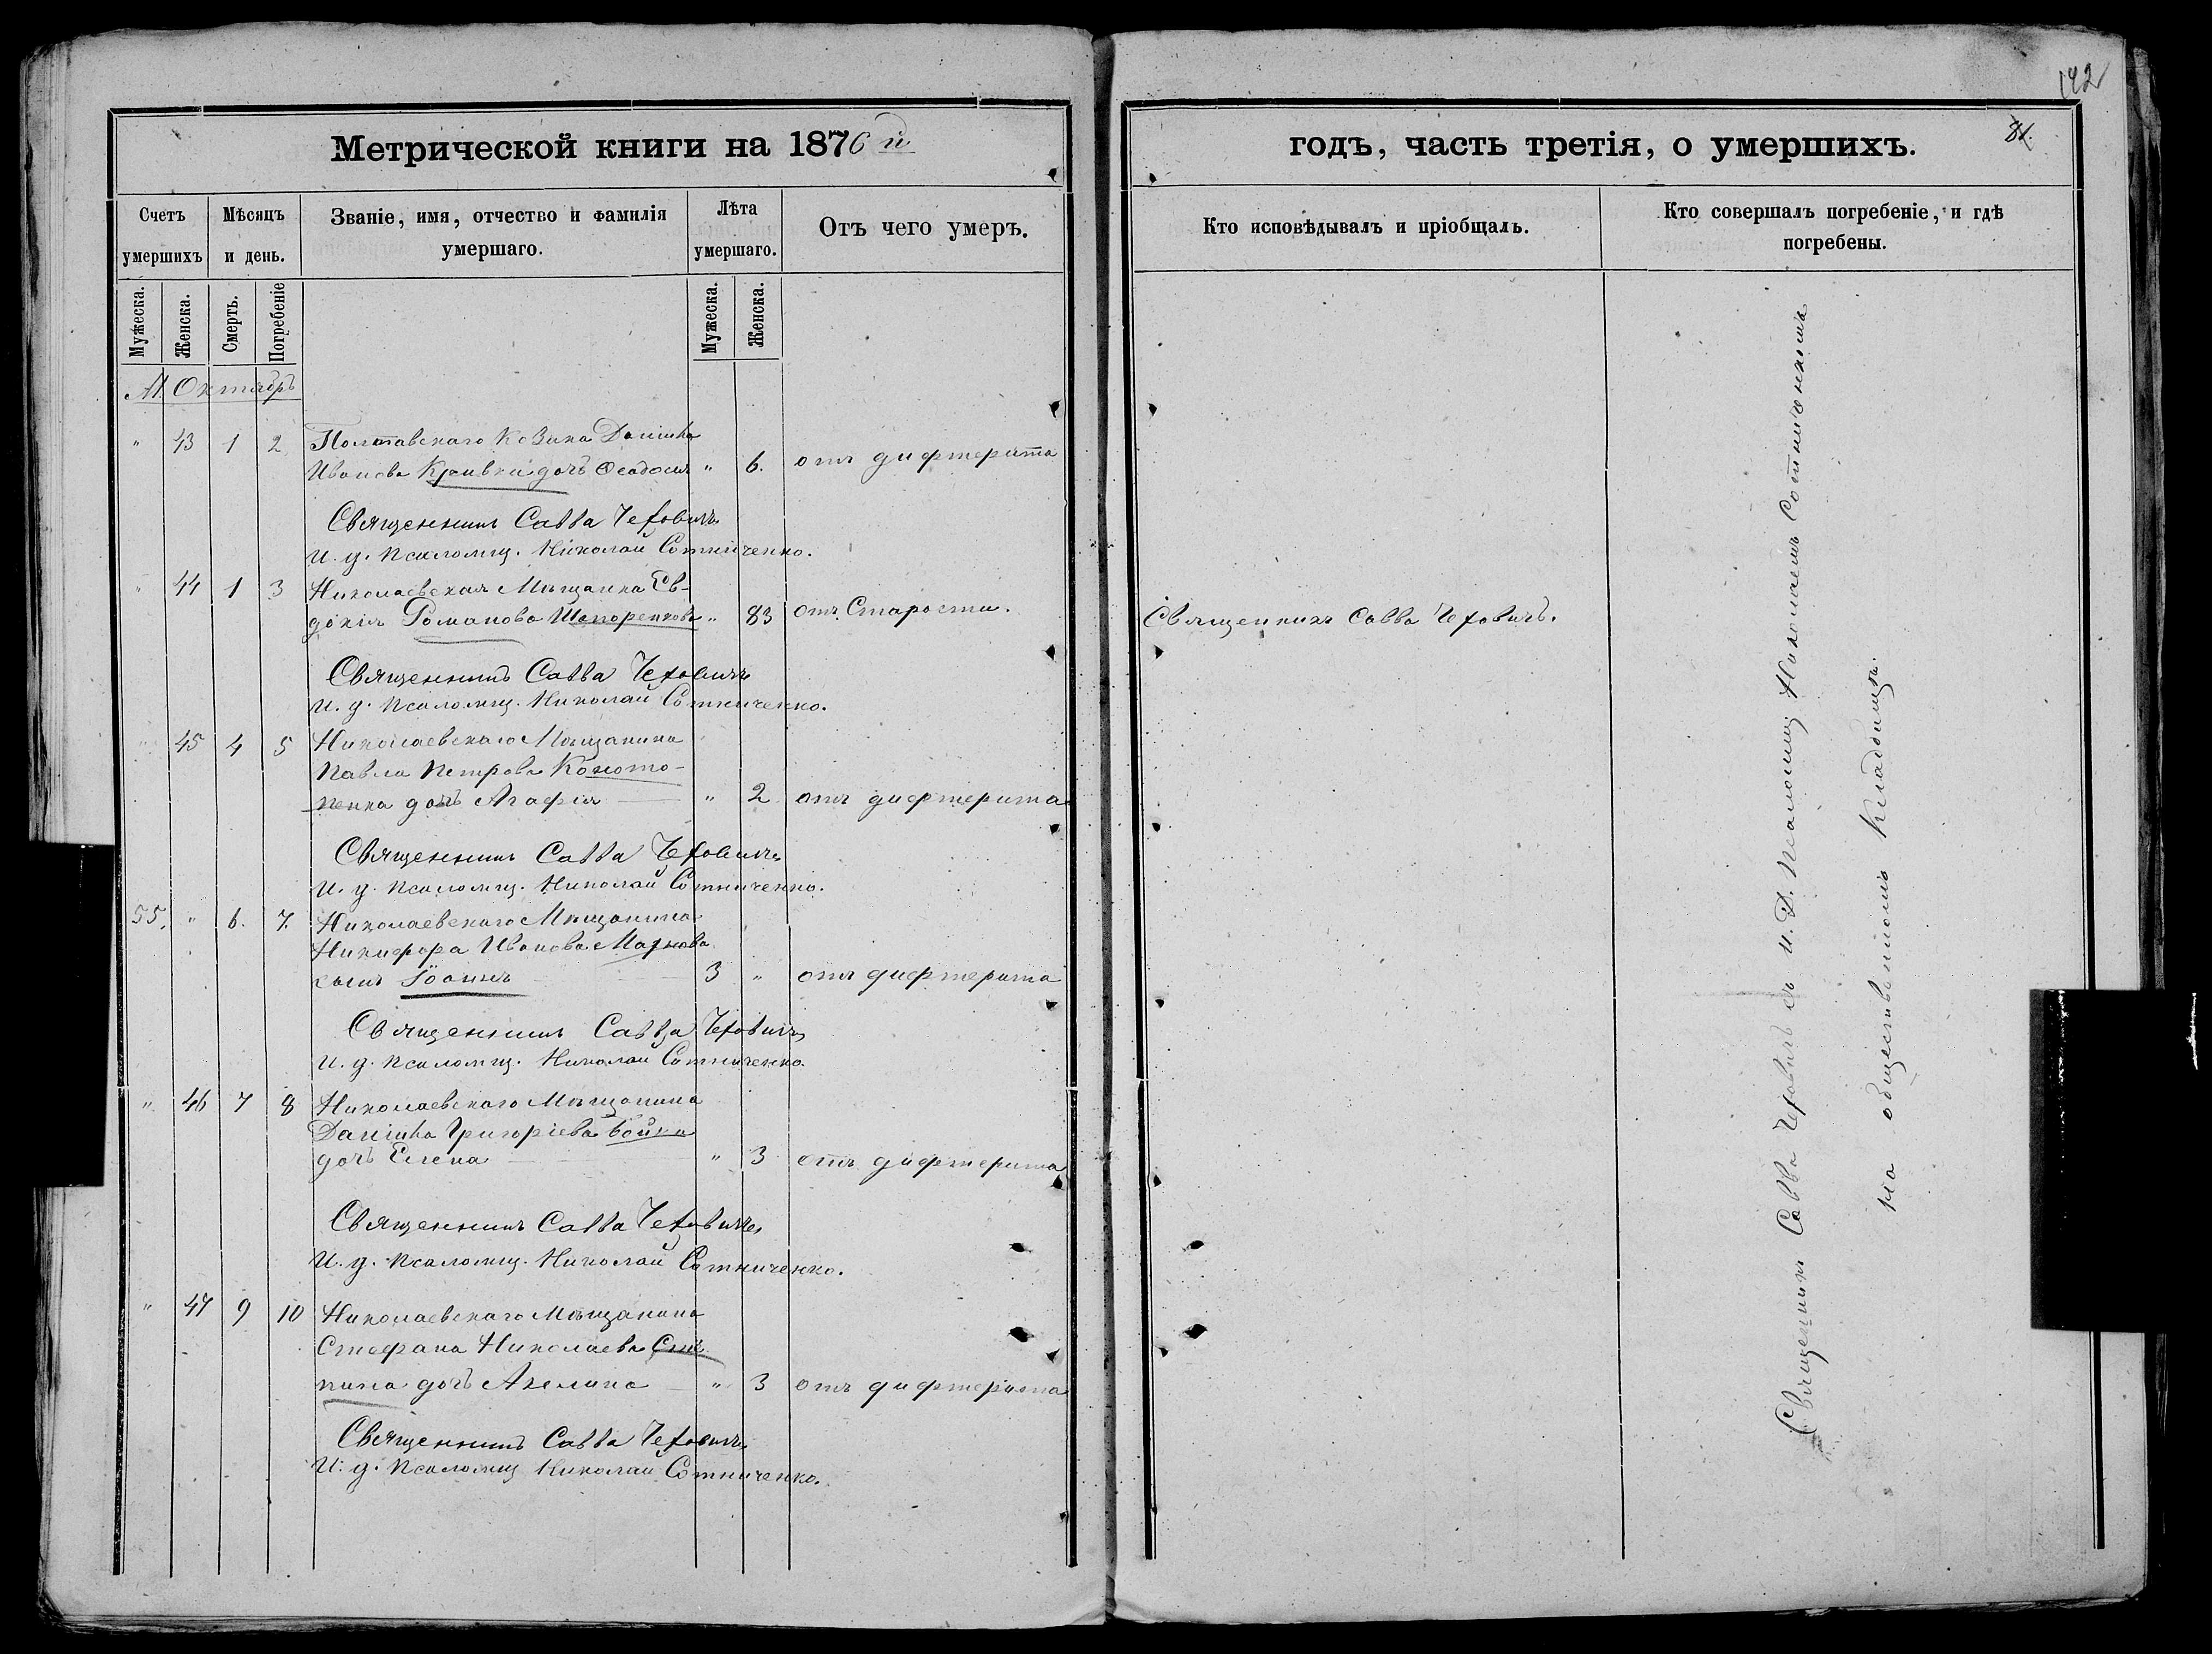 142
Метрической книги на 1876 й
годъ, часть третія, о умершихъ.
81.
Счетъ умершихъ
Мѣсяцъ и день.
Званіе, имя, отчество и фамилія умершаго.
Лѣта умершаго.
Отъ чего умеръ.
Кто исповѣдывалъ и пріобщалъ.
Кто совершалъ погребеніе, и гдѣ погребены.
Мужеска.
Женска.
Смерть.
Погребеніе
Мужеска.
Женска.
М. Октябрь
" 43 1 2 Полтавскаго Козака Даніила
Иванова дочь Феодосія " 6. отъ дифтерита
Священникъ Савва Чехович
И. д. псаломщ. Николай Сотниченко.
" 44 1 3 Николаевская Мѣщанка Ев-
докія Романова Шапоренкова " 83 отъ Старости. Священникъ Савва Чеховичъ.
Священникъ Савва Чехович
И. д. псаломщ. Николай Сотниченко.
" 45 4 5 Николаевскаго Мѣщанина
Павла Петрова Коното-
пенка дочь Агафія " 2 отъ дифтерита
Священникъ Савва Чехович
И. д. псаломщ. Николай Сотниченко.
55. " 6. 7. Николаевскаго Мѣщанина
Никифора Иванова
сынъ Іоаннъ 3 " отъ дифтерита
Священникъ Савва Чехович
И. д. псаломщ. Николай Сотниченко.
" 46 7 8 Николаевскаго Мѣщанина
Даніила Григоріева Бойка
дочь Елена " 3 отъ дифтерита
Священникъ Савва Чехович
И. д. псаломщ. Николай Сотниченко.
" 47 9 10 Николаевскаго Мѣщанина
Стефана Николаева
дочь Акелина " 3 отъ дифтерита
Священникъ Савва Чехович
И. д. псаломщ Николай Сотниченко.
Священникъ Савва Чеховичъ съ и. д. псаломщ. Николаемъ Сотниченкомъ
на общественномъ кладбищѣ.